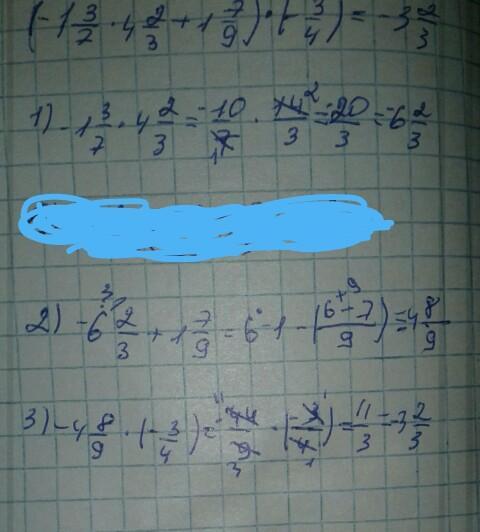 (-1 3/7 · 4 2/3 + 1 7/9) · (-3/4) = -3 2/3
1) -1 3/7 · 4 2/3 = -10/7 · 14/3 = -20/3 = -6 2/3
2) -6 2/3 + 1 7/9 = 6 - 1 - (6+9-7/9) = 4 8/9
3) -4 8/9 · (-3/4) = -44/9 · (-3/4) = 11/3 = -3 2/3